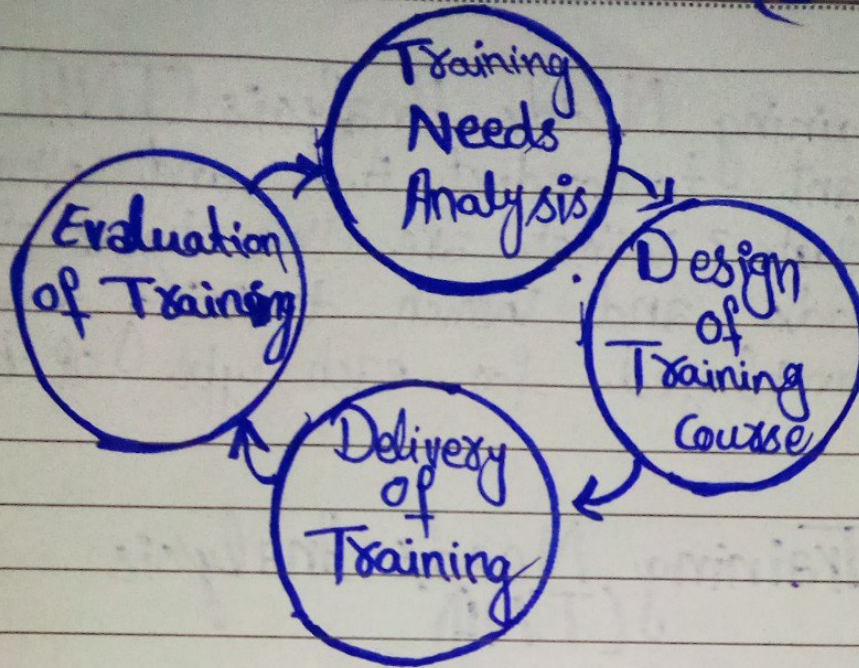 Training
Needs
Analysis
Design
of
Training
Course
Delivery
of
Training
Evaluation
of Training